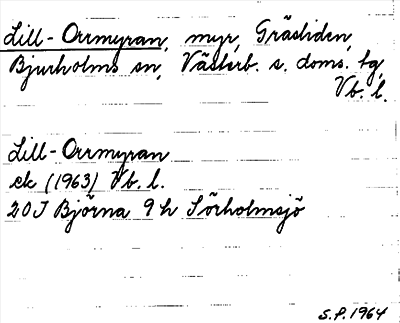 Lill-Orrmyran, myr, Gräsliden,
Bjurholms sn, Västerb. s. doms. tg,
Vb. l.
Lill-Orrmyran
ek (1963) Vb. l.
20 J Björna 9 h Sörholmsjö
S.P. 1964